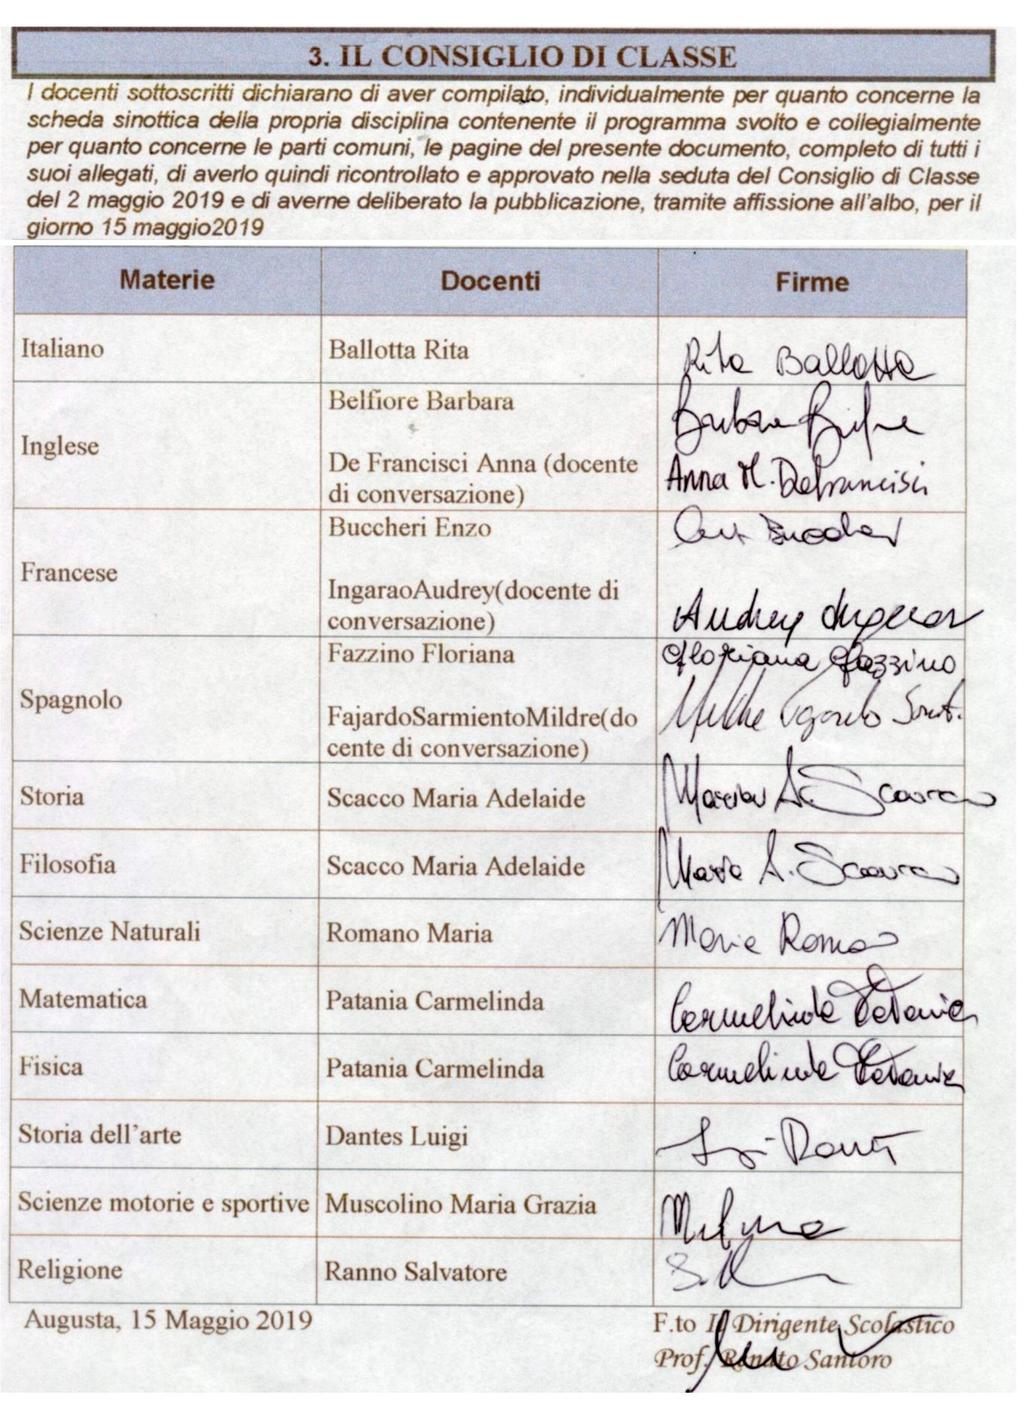 3. IL CONSIGLIO DI CLASSE
I docenti sottoscritti dichiarano di aver compilato, individualmente per quanto concerne la
scheda sinottica della propria disciplina contenente il programma svolto e collegialmente
per quanto concerne le parti comuni, le pagine del presente documento, completo di tutti i
suoi allegati, di averlo quindi ricontrollato e approvato nella seduta del Consiglio di Classe
del 2 maggio 2019 e di averne deliberato la pubblicazione, tramite affissione all'albo, per il
giorno 15 maggio2019
Materie Docenti Firme
Italiano Ballotta Rita Rita Ballotta
Inglese
Belfiore Barbara Barbara
De Francisci Anna (docente
di conversazione) Anna M. Defrancisci
Francese
Buccheri Enzo
IngaraoAudrey(docente di
conversazione) Audrey
Spagnolo
Fazzino Floriana Floriana Fazzino
FajardoSarmientoMildre(do
cente di conversazione)
Storia Scacco Maria Adelaide Maria A. Scacco
Filosofia Scacco Maria Adelaide Maria A. Scacco
Scienze Naturali Romano Maria Maria Romano
Matematica Patania Carmelinda Carmelinda Patania
Fisica Patania Carmelinda Carmelinda Patania
Storia dell'arte Dantes Luigi
Scienze motorie e sportive Muscolino Maria Grazia
Religione Ranno Salvatore
Augusta, 15 Maggio 2019 F.to Il Dirigente Scolastico
Prof. Renato Santoro